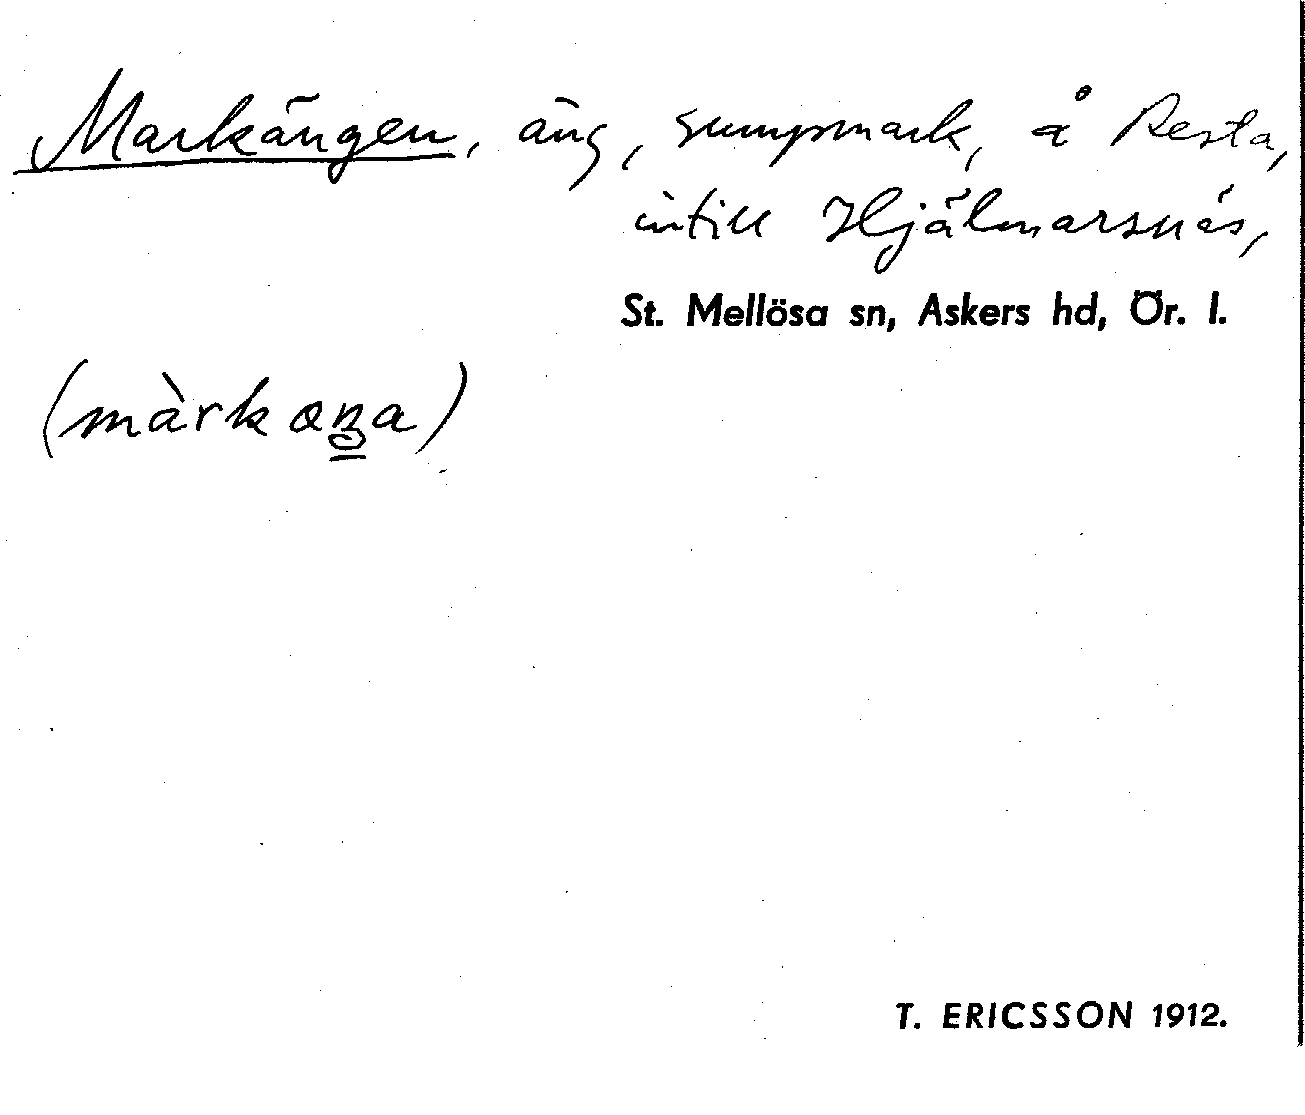 Markängen, äng, sumpmark, å Resta,
intill Hjälmarsnäs,
St. Mellösa sn, Askers hd, Ör. l.
T. ERICSSON 1912.